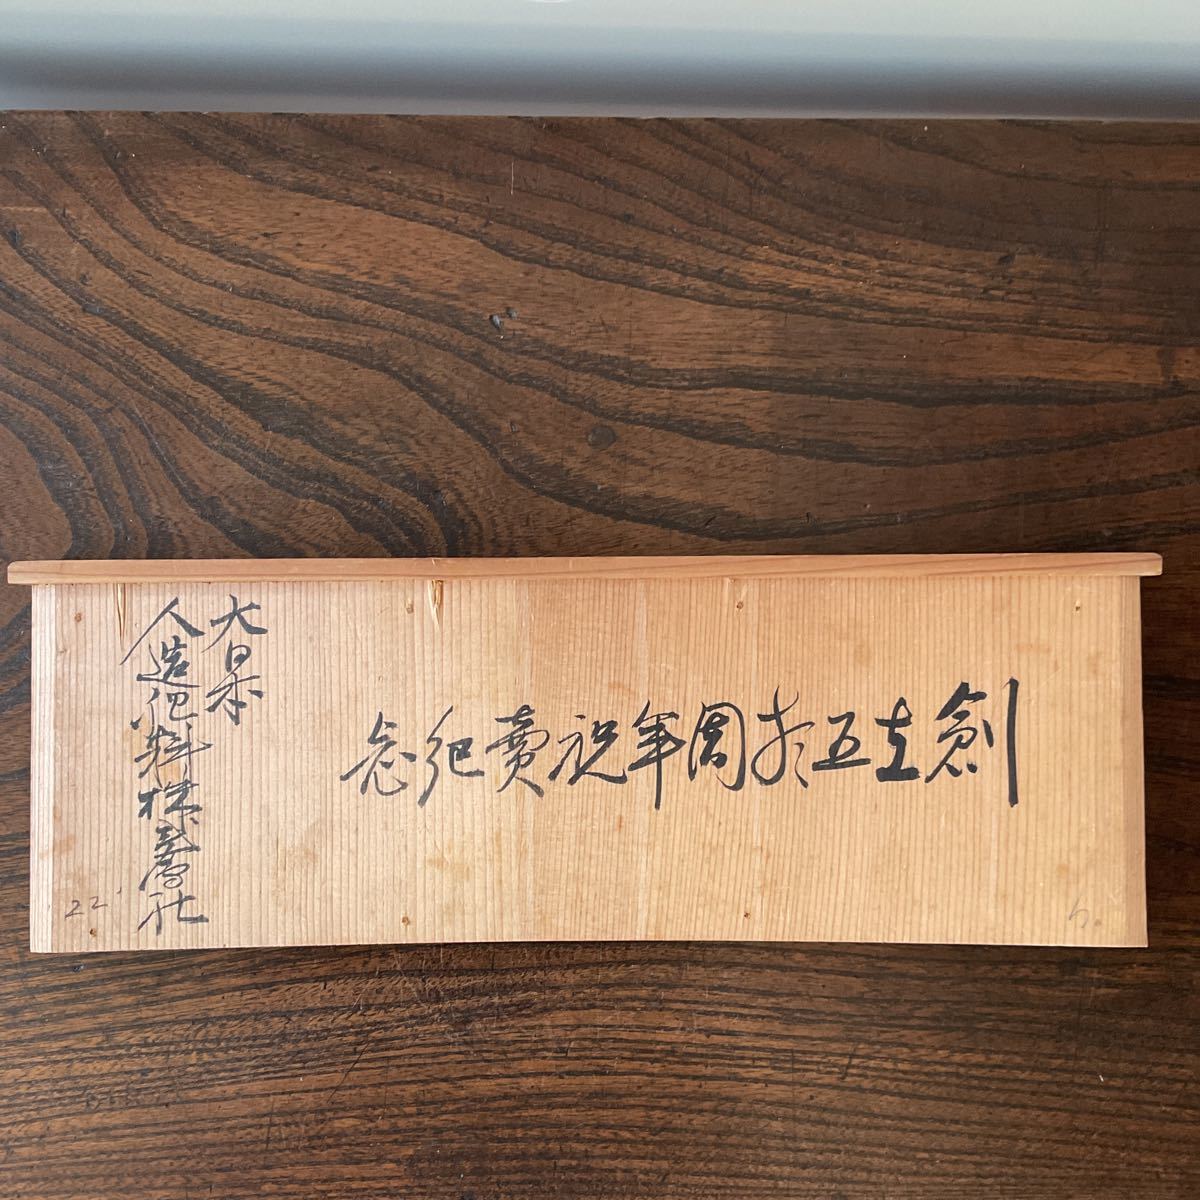 創立五拾周年祝賣紀念
大日本
人造肥料株式會社
22'